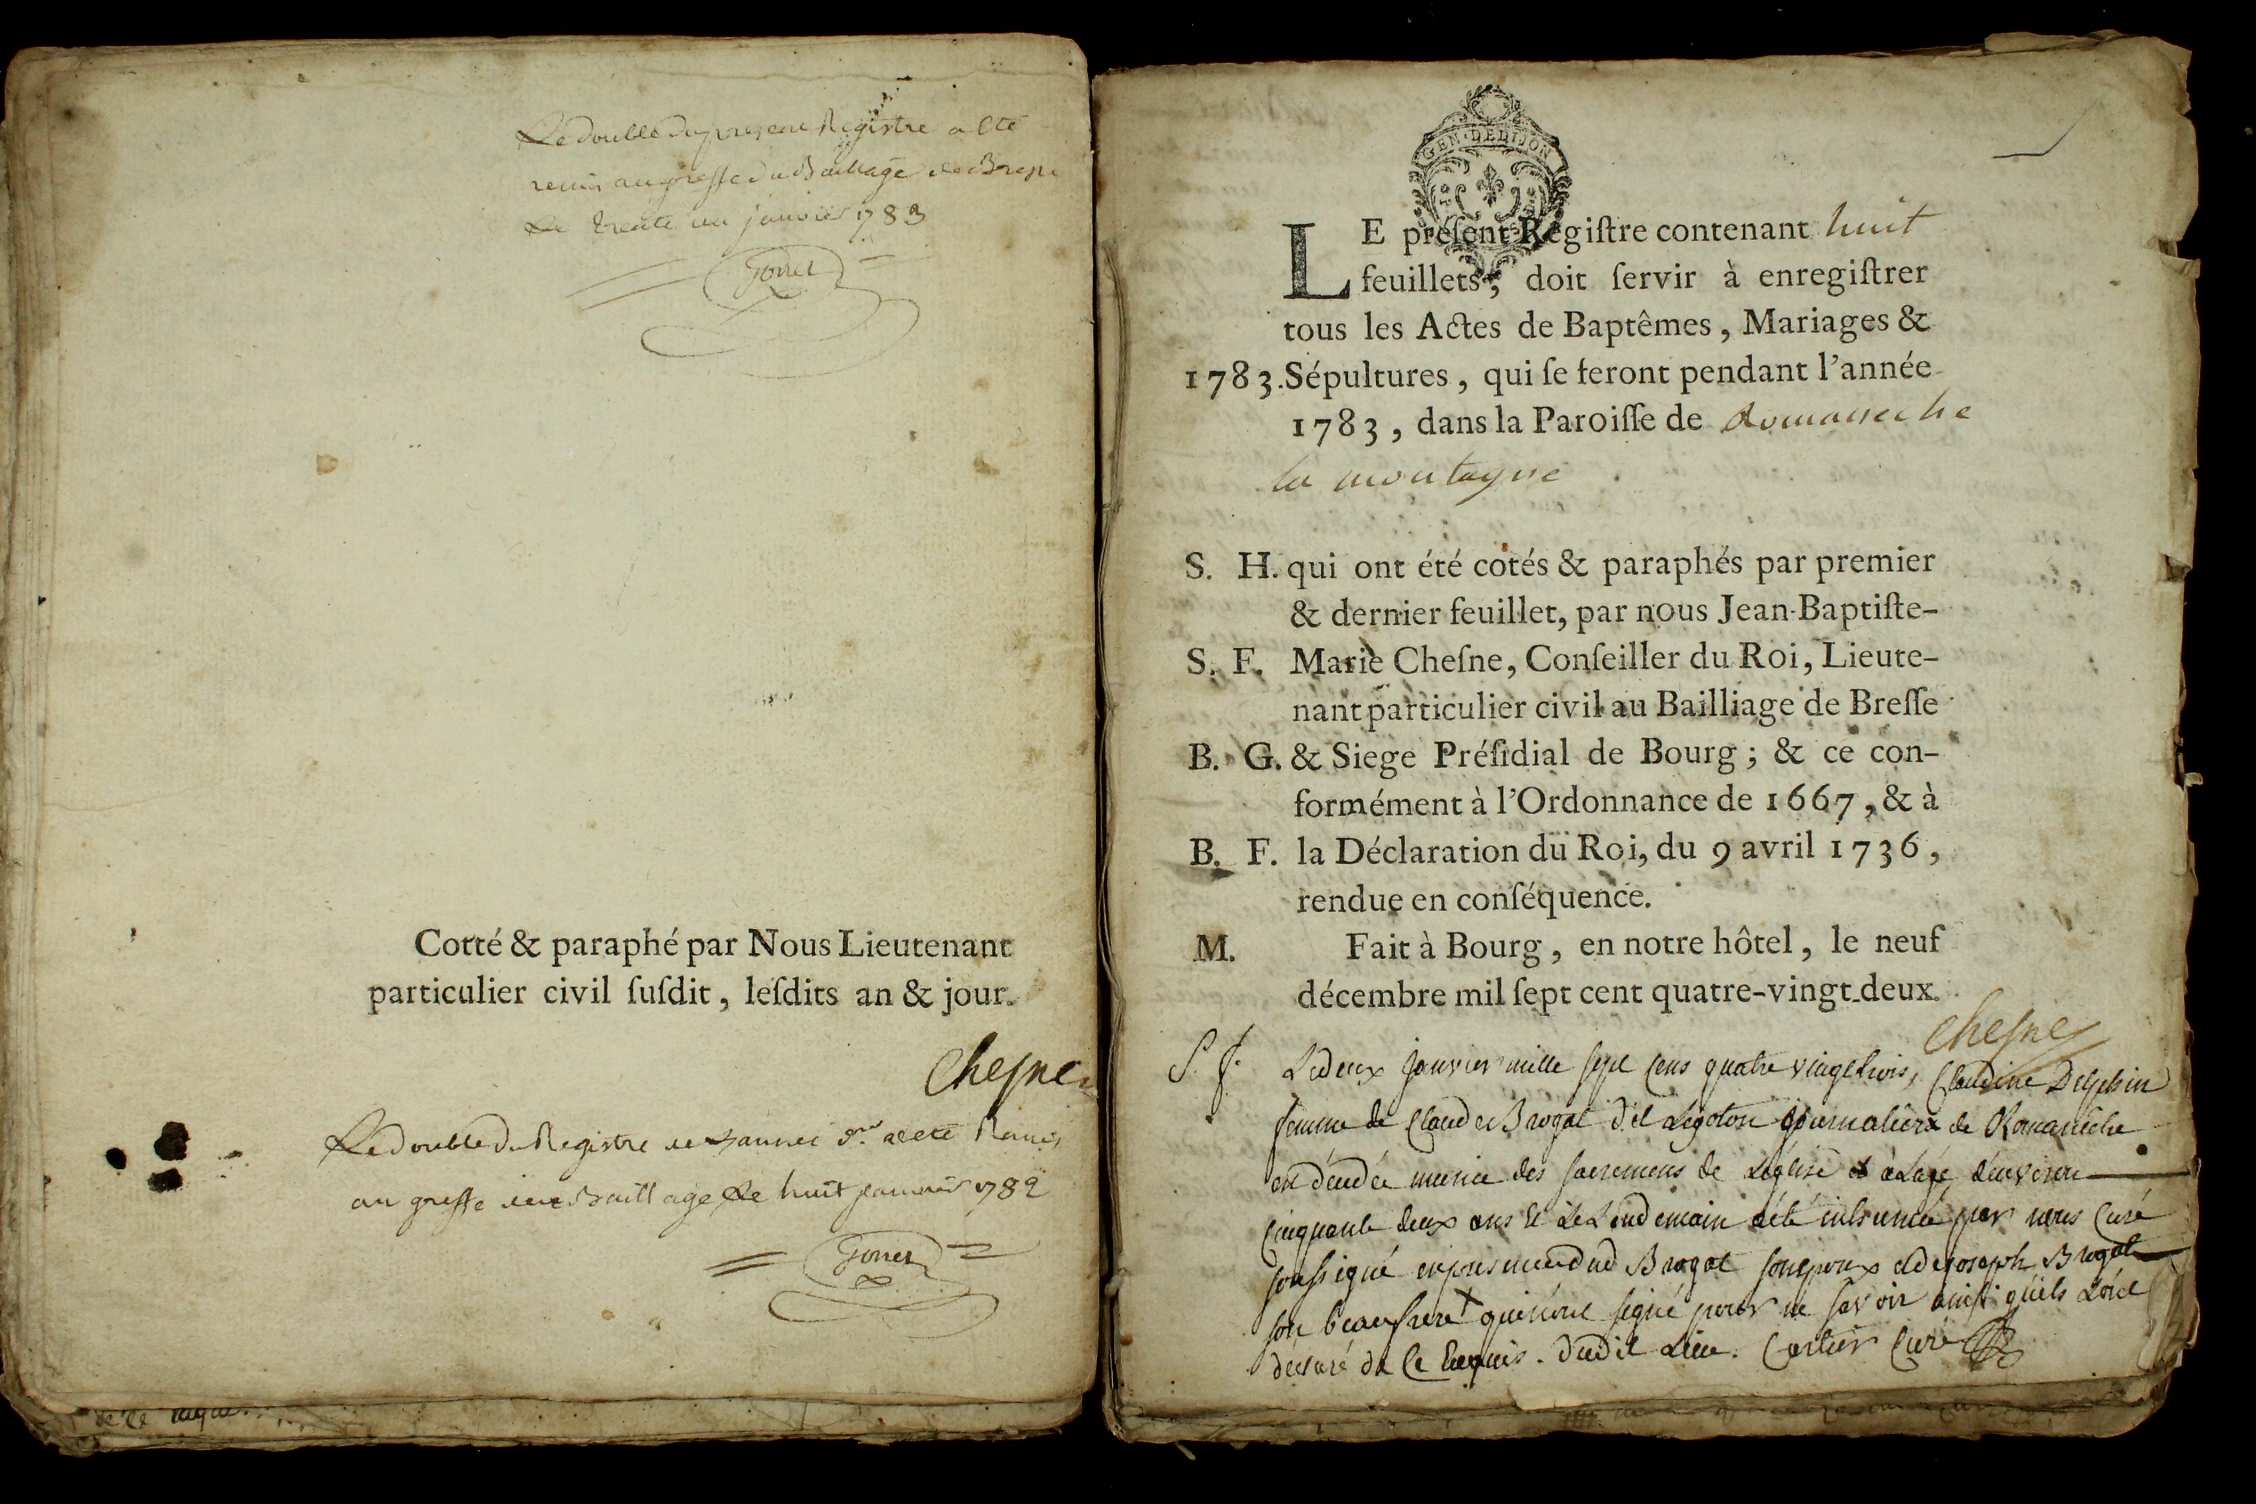 Le double du present Registre a été
remis au greffe du Bailliage de Bresse
Le trente un janvier 1783
Cotté & paraphé par Nous Lieutenant
particulier civil ſuſdit, leſdits an & jour.
Cheſne
Le double du Registre de l'année dre a été Remis
au greffe du Bailliage Le huit janvier 1782
GEN·DEDIJON
LE préſent Regiſtre contenant huit
feuillets, doit ſervir à enregiſtrer
tous les Actes de Baptêmes, Mariages &
1783. Sépultures, qui ſe feront pendant l'année
1783, dans la Paroiſſe de Romaneche
la montagne
S. H. qui ont été cotés & paraphés par premier
& dernier feuillet, par nous Jean-Baptiſte-
S. F. Marie Cheſne, Conſeiller du Roi, Lieute-
nant particulier civil au Bailliage de Breſſe
B. G. & Siege Préſidial de Bourg; & ce con-
formément à l'Ordonnance de 1667, & à
B. F. la Déclaration du Roi, du 9 avril 1736,
rendue en conſéquence.
M. Fait à Bourg, en notre hôtel, le neuf
décembre mil ſept cent quatre-vingt-deux.
Cheſne
S. f. Le deux janvier mille sept cens quatre vingt trois, Claudine Delphin
femme de Claude Brogat dit Ligoton journaliere de Romaneche
est décédée munie des sacremens de L'église et a L'age d'environ
cinquante deux ans et Le Lendemain a été inhumée par nous Curé
soussigné en presence dud Brogat son epoux et de joseph Brogat
son beaufrere + qui n'ont signé pour ne savoir ainsi qu'ils L'ont
déclaré de ce Enquis. + dudit Lieu. Cartier Curé